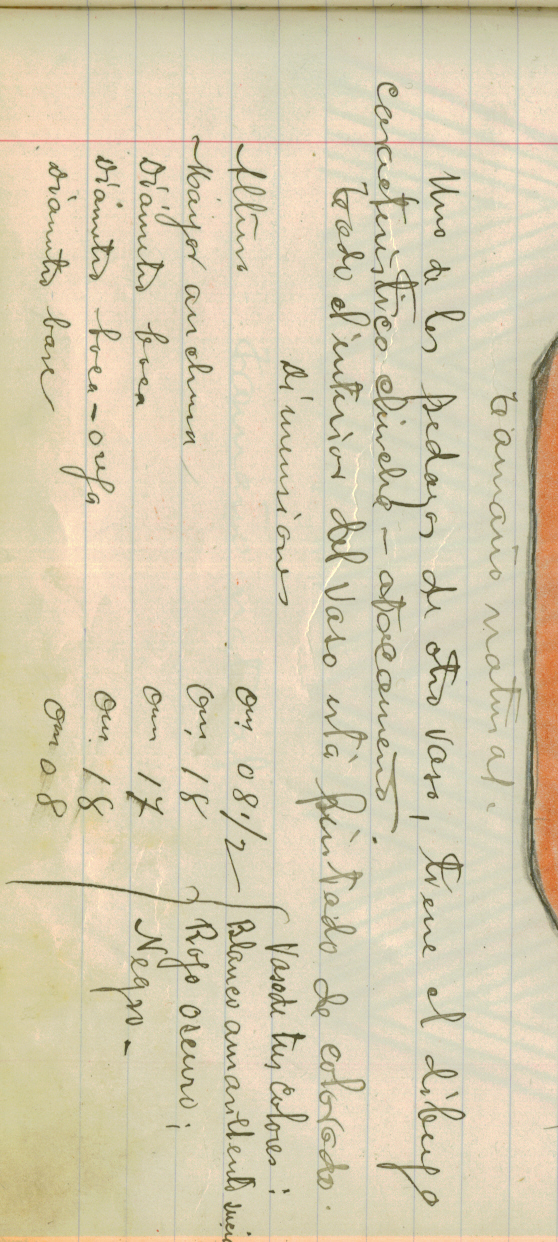 tamaño natural.
Uno de los pedazos de otro vaso, tiene el dibujo
característico chincha-atacameño.
Todo el interior del vaso está pintado de colorado.
Dimensiones
Altura 0m. 08 1/2
Mayor anchura 0m. 18
Diámetro boca 0m 17
Diámetro boca-oreja 0m. 18
Diámetro base 0m 08
Vaso de tres colores:
Blanco amarillento sucio
Rojo oscuro;
Negro.-